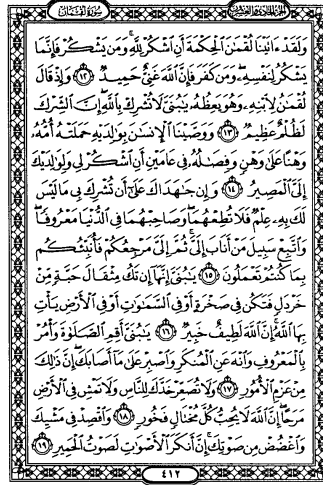 الجزء الحادي والعشرون سورة لقمان
وَلَقَدْ ءَاتَيْنَا لُقْمَٰنَ ٱلْحِكْمَةَ أَنِ ٱشْكُرْ لِلَّهِ وَمَن يَشْكُرْ فَإِنَّمَا
يَشْكُرُ لِنَفْسِهِۦ وَمَن كَفَرَ فَإِنَّ ٱللَّهَ غَنِىٌّ حَمِيدٌ ١٢ وَإِذْ قَالَ
لُقْمَٰنُ لِٱبْنِهِۦ وَهُوَ يَعِظُهُۥ يَٰبُنَىَّ لَا تُشْرِكْ بِٱللَّهِ إِنَّ ٱلشِّرْكَ
لَظُلْمٌ عَظِيمٌ ١٣ وَوَصَّيْنَا ٱلْإِنسَٰنَ بِوَٰلِدَيْهِ حَمَلَتْهُ أُمُّهُۥ
وَهْنًا عَلَىٰ وَهْنٍ وَفِصَٰلُهُۥ فِى عَامَيْنِ أَنِ ٱشْكُرْ لِى وَلِوَٰلِدَيْكَ
إِلَىَّ ٱلْمَصِيرُ ١٤ وَإِن جَٰهَدَاكَ عَلَىٰٓ أَن تُشْرِكَ بِى مَا لَيْسَ
لَكَ بِهِۦ عِلْمٌ فَلَا تُطِعْهُمَا وَصَاحِبْهُمَا فِى ٱلدُّنْيَا مَعْرُوفًا
وَٱتَّبِعْ سَبِيلَ مَنْ أَنَابَ إِلَىَّ ثُمَّ إِلَىَّ مَرْجِعُكُمْ فَأُنَبِّئُكُم
بِمَا كُنتُمْ تَعْمَلُونَ ١٥ يَٰبُنَىَّ إِنَّهَآ إِن تَكُ مِثْقَالَ حَبَّةٍ مِّنْ
خَرْدَلٍ فَتَكُن فِى صَخْرَةٍ أَوْ فِى ٱلسَّمَٰوَٰتِ أَوْ فِى ٱلْأَرْضِ يَأْتِ
بِهَا ٱللَّهُ إِنَّ ٱللَّهَ لَطِيفٌ خَبِيرٌ ١٦ يَٰبُنَىَّ أَقِمِ ٱلصَّلَوٰةَ وَأْمُرْ
بِٱلْمَعْرُوفِ وَٱنْهَ عَنِ ٱلْمُنكَرِ وَٱصْبِرْ عَلَىٰ مَآ أَصَابَكَ إِنَّ ذَٰلِكَ
مِنْ عَزْمِ ٱلْأُمُورِ ١٧ وَلَا تُصَعِّرْ خَدَّكَ لِلنَّاسِ وَلَا تَمْشِ فِى ٱلْأَرْضِ
مَرَحًا إِنَّ ٱللَّهَ لَا يُحِبُّ كُلَّ مُخْتَالٍ فَخُورٍ ١٨ وَٱقْصِدْ فِى مَشْيِكَ
وَٱغْضُضْ مِن صَوْتِكَ إِنَّ أَنكَرَ ٱلْأَصْوَٰتِ لَصَوْتُ ٱلْحَمِيرِ ١٩
٤١٢